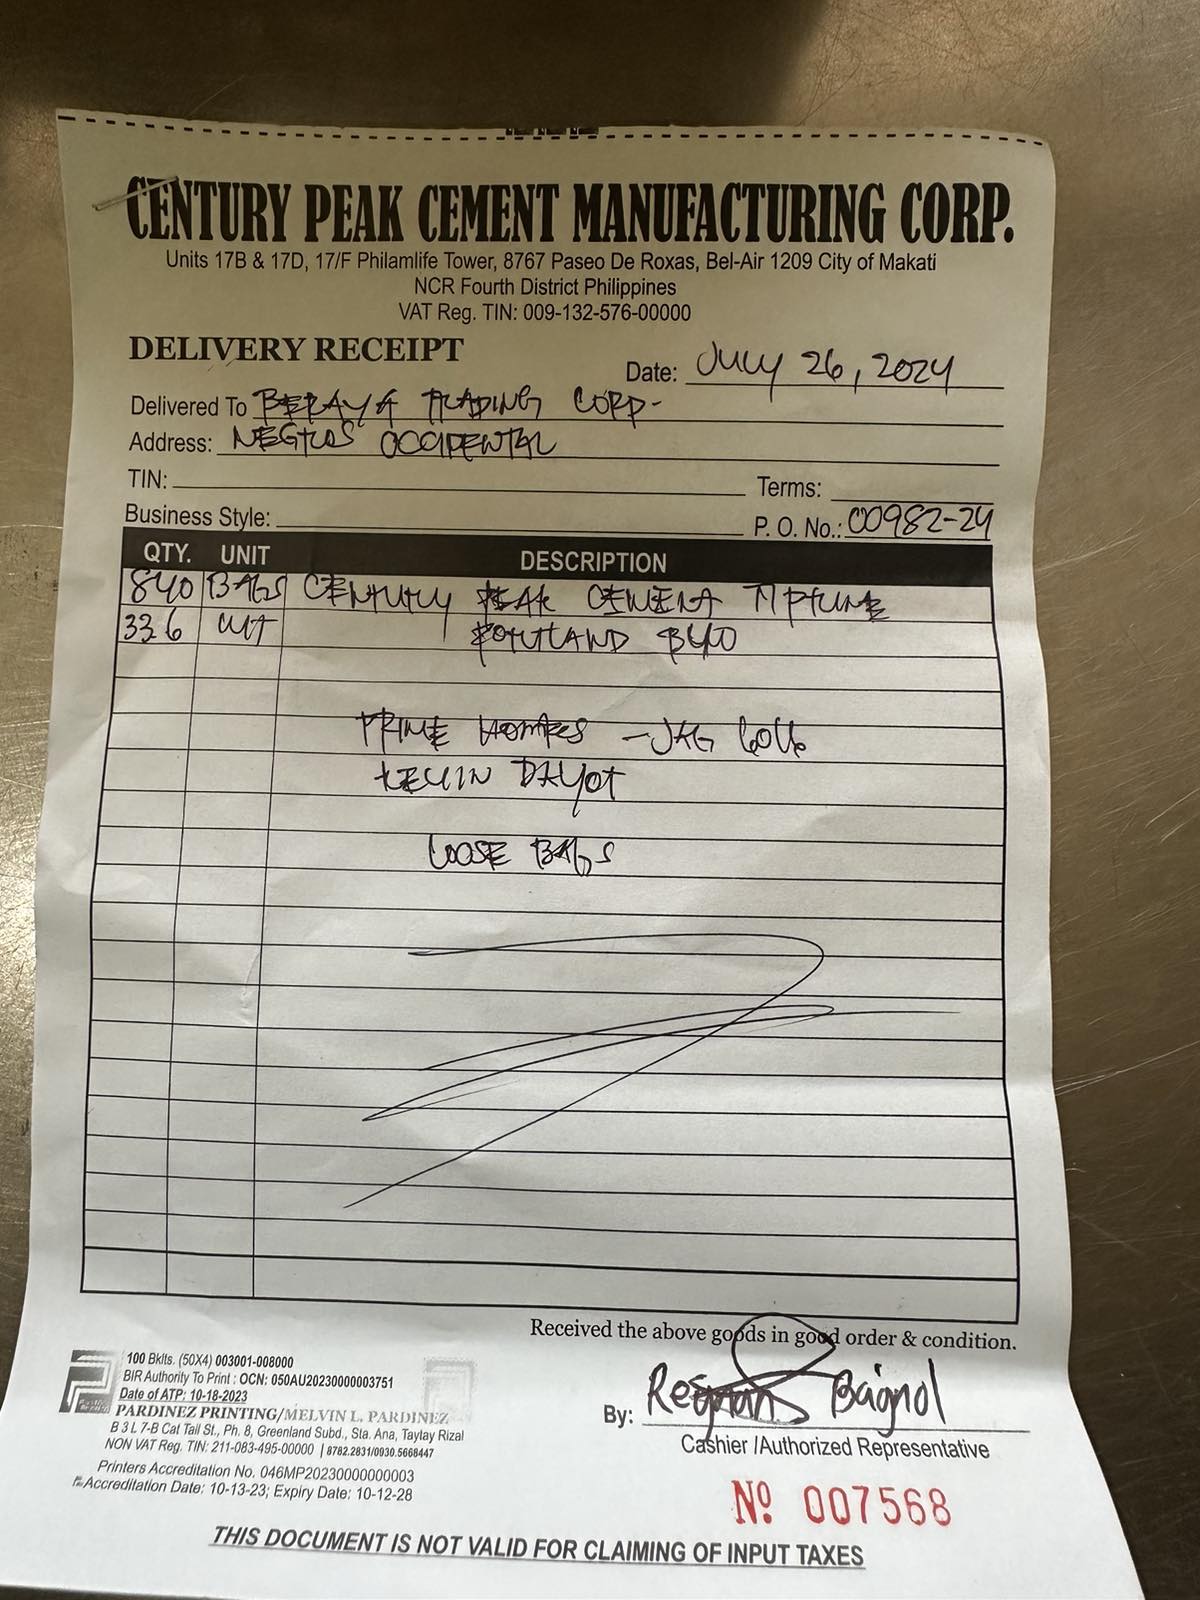 CENTURY PEAK CEMENT MANUFACTURING CORP.
Units 17B & 17D, 17/F Philamlife Tower, 8767 Paseo De Roxas, Bel-Air 1209 City of Makati
NCR Fourth District Philippines
VAT Reg. TIN: 009-132-576-00000
DELIVERY RECEIPT
Date: JULY 26, 2024
Delivered To TRADING CORP-
Address: NEGROS OCCIDENTAL
TIN:
Terms:
Business Style:
P. O. No.: 00982-24
QTY. UNIT DESCRIPTION
840 BAGS CENTURY PEAK CEMENT
336 PORTLAND
PRIME HOMES
DAYOT
LOOSE BAGS
Received the above goods in good order & condition.
By: Baignol
Cashier /Authorized Representative
100 Bklts. (50X4) 003001-008000
BIR Authority To Print : OCN: 050AU20230000003751
Date of ATP: 10-18-2023
PARDINEZ PRINTING/MELVIN L. PARDINEZ
B 3 L 7-B Cat Tail St., Ph. 8, Greenland Subd., Sta. Ana, Taylay Rizal
NON VAT Reg. TIN: 211-083-495-00000 | 8782.2831/0930.5668447
Printers Accreditation No. 046MP20230000000003
Accreditation Date: 10-13-23; Expiry Date: 10-12-28
Nº 007568
THIS DOCUMENT IS NOT VALID FOR CLAIMING OF INPUT TAXES